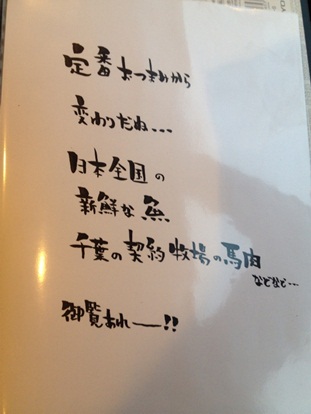 定番おつまみから
変わりだね…
日本全国の
新鮮な魚
千葉の契約牧場の馬肉
などなど…
御覧あれー!!